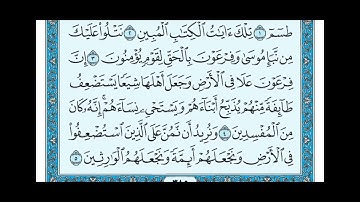 طسٓمٓ ١ تِلۡكَ ءَايَٰتُ ٱلۡكِتَٰبِ ٱلۡمُبِينِ ٢ نَتۡلُواْ عَلَيۡكَ
مِن نَّبَإِ مُوسَىٰ وَفِرۡعَوۡنَ بِٱلۡحَقِّ لِقَوۡمٖ يُؤۡمِنُونَ ٣ إِنَّ
فِرۡعَوۡنَ عَلَا فِي ٱلۡأَرۡضِ وَجَعَلَ أَهۡلَهَا شِيَعٗا يَسۡتَضۡعِفُ
طَآئِفَةٗ مِّنۡهُمۡ يُذَبِّحُ أَبۡنَآءَهُمۡ وَيَسۡتَحۡيِۦ نِسَآءَهُمۡۚ إِنَّهُۥ كَانَ
مِنَ ٱلۡمُفۡسِدِينَ ٤ وَنُرِيدُ أَن نَّمُنَّ عَلَى ٱلَّذِينَ ٱسۡتُضۡعِفُواْ
فِي ٱلۡأَرۡضِ وَنَجۡعَلَهُمۡ أَئِمَّةٗ وَنَجۡعَلَهُمُ ٱلۡوَٰرِثِينَ ٥
٣٨٥